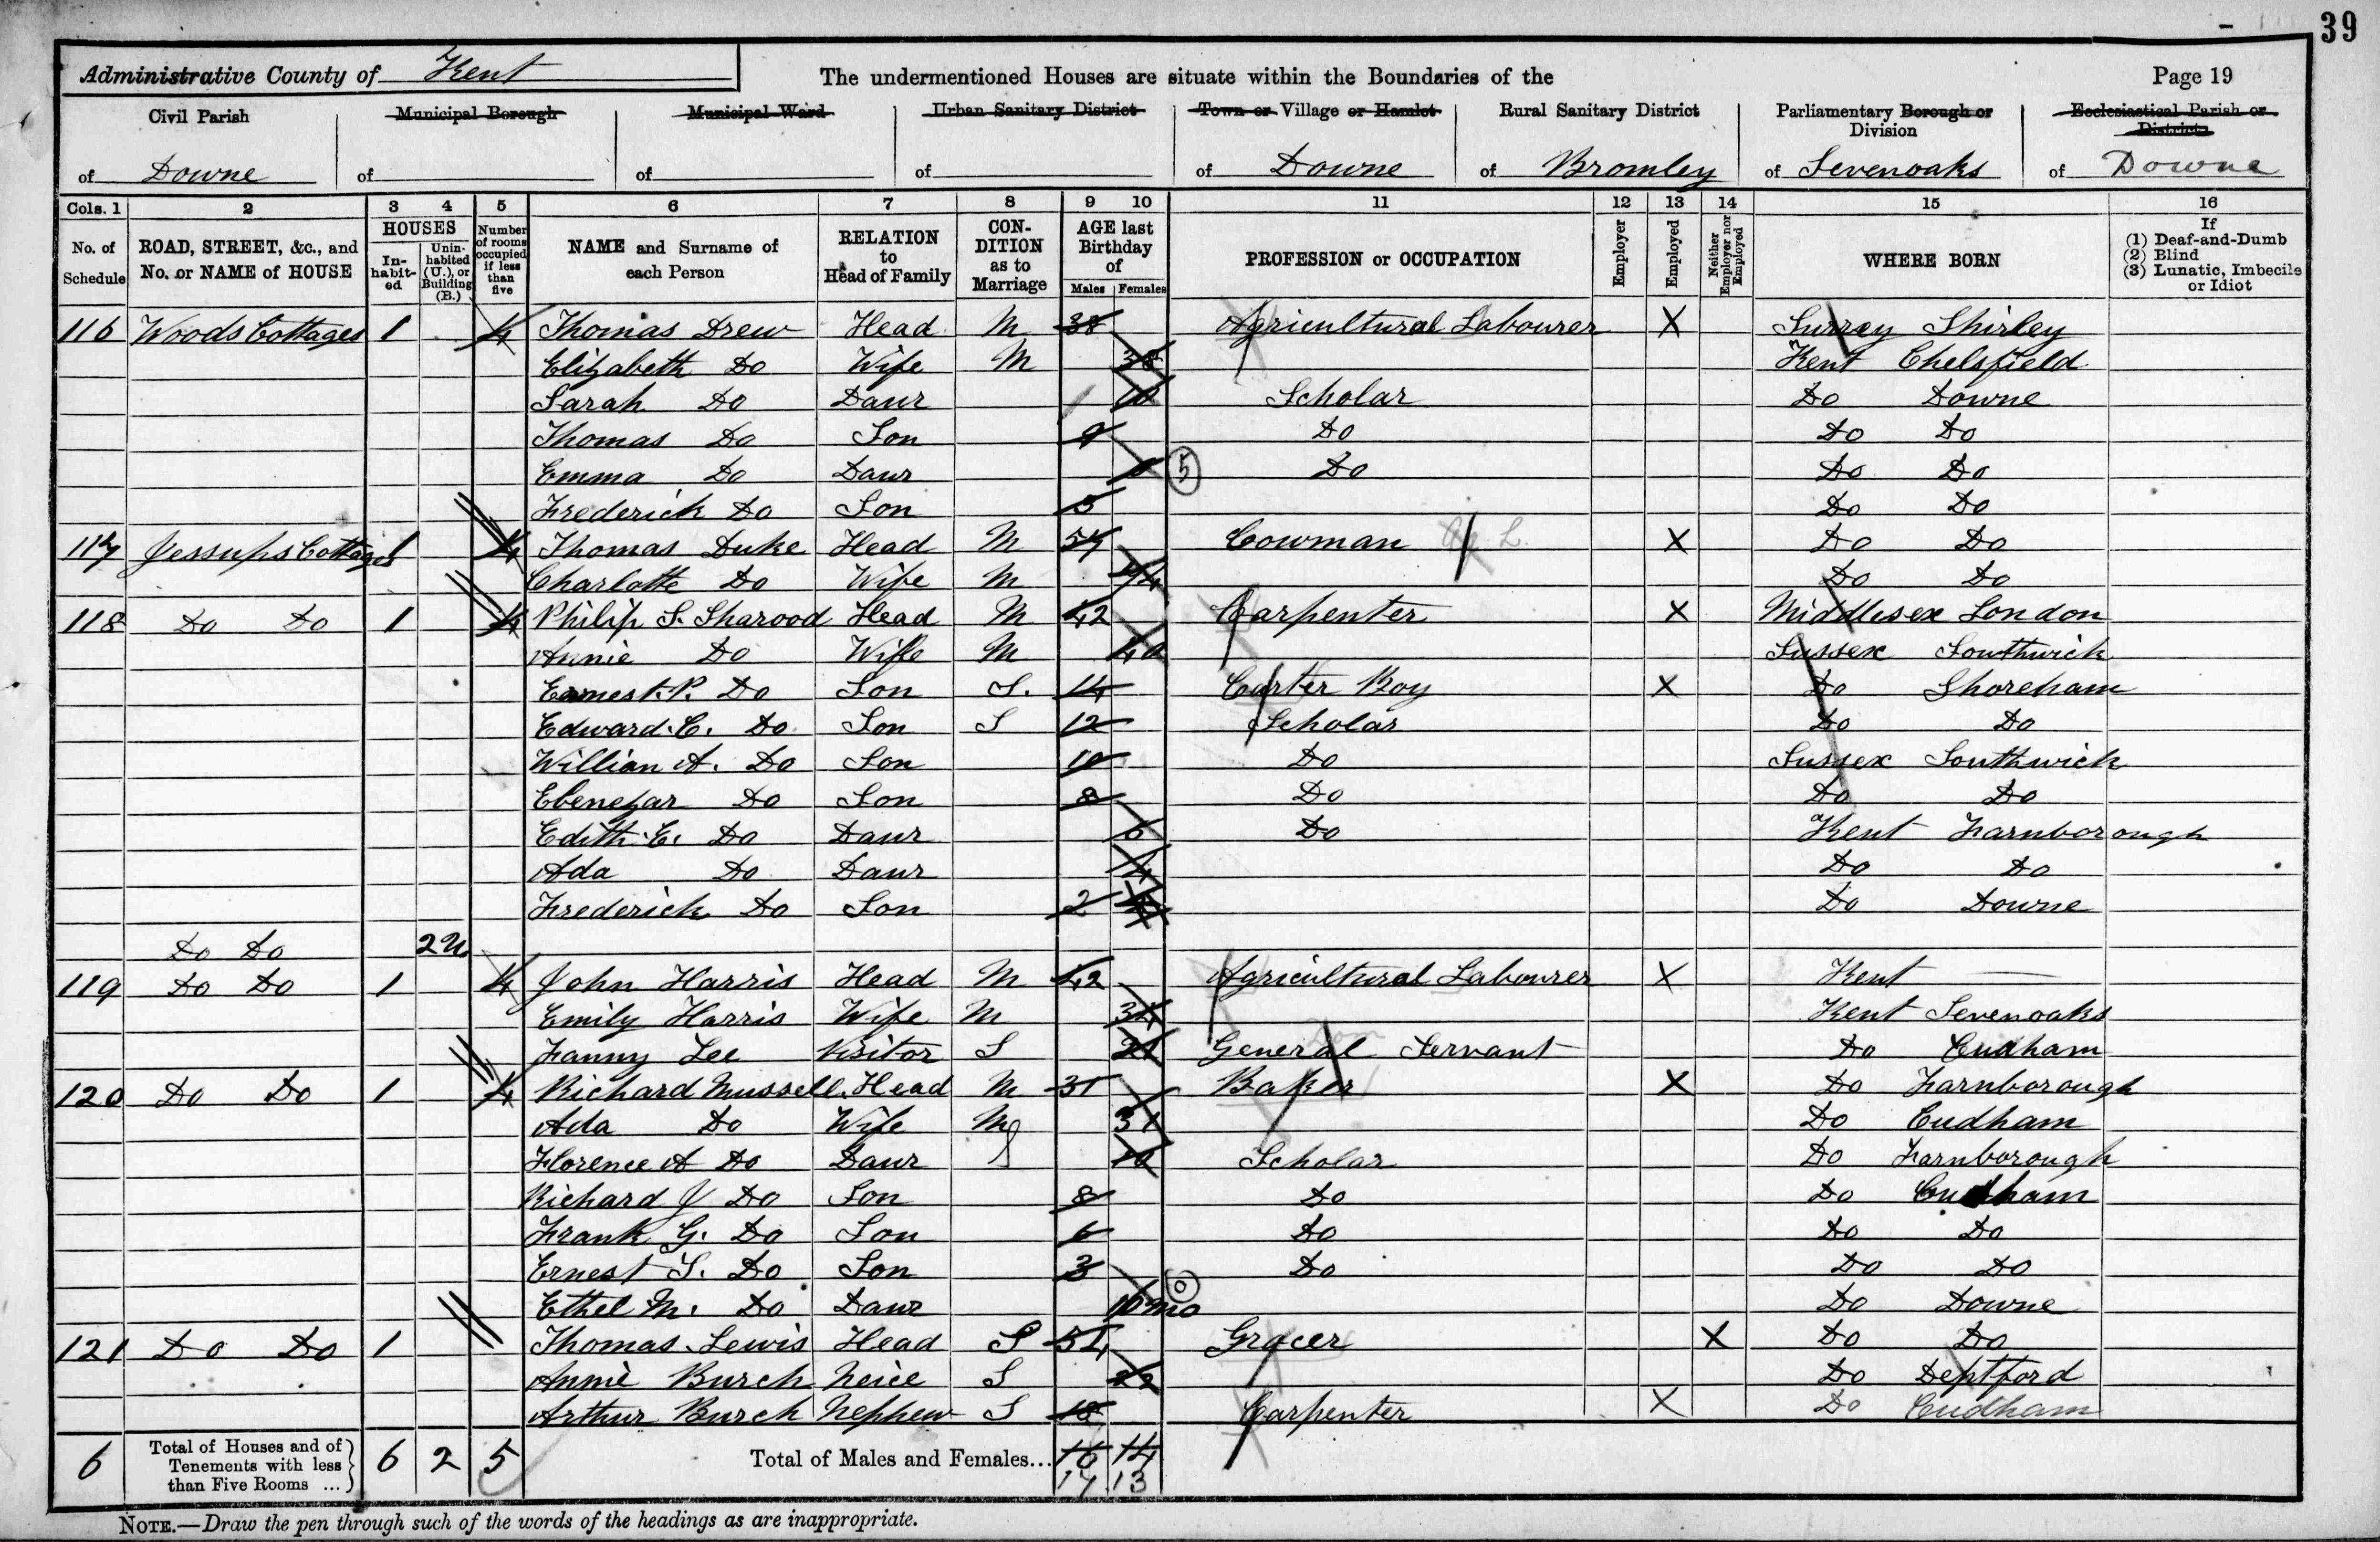 39
Administrative County of Kent The undermentioned Houses are situate within the Boundaries of the Page 19
Civil Parish Municipal Borough Municipal Ward Urban Sanitary District Town or Village or Hamlet Rural Sanitary District Parliamentary Borough or Division Ecclesiastical Parish or District
of Downe of of of of Downe of Bromley of Sevenoaks of Downe
Cols. 1 2 3 4 5 6 7 8 9 10 11 12 13 14 15 16
No. of Schedule ROAD, STREET, &c., and No. or NAME of HOUSE HOUSES In-habit-ed Unin-habited (U.), or Building (B.) Number of rooms occupied if less than five NAME and Surname of each Person RELATION to Head of Family CON-DITION as to Marriage AGE last Birthday of Males Females PROFESSION or OCCUPATION Employer Employed Neither Employer nor Employed WHERE BORN If (1) Deaf-and-Dumb (2) Blind (3) Lunatic, Imbecile or Idiot
116 Woods Cottages 1 4 Thomas Drew Head M 38 Agricultural Labourer X Surrey Shirley
Elizabeth Do Wife M 38 Kent Chelsfield
Sarah Do Daur 10 Scholar Do Downe
Thomas Do Son 9 Do Do Do
Emma Do Daur 5 Do Do Do
Frederick Do Son 5 Do Do
117 Jessups Cottages 1 4 Thomas Duke Head M Cowman Ag L. X Do Do
Charlotte Do Wife M Do Do
118 Do Do 1 4 Philip S. Sharood Head M 42 Carpenter X Middlesex London
Annie Do Wife M 40 Sussex Southwick
Earnest. P. Do Son S. 14 Carter Boy X Do Shoreham
Edward. C. Do Son S 12 Scholar Do Do
Willian A. Do Son 10 Do Sussex Southwick
Ebenezar Do Son 8 Do Do Do
Edith. E. Do Daur 6 Do Kent Farnborough
Ada Do Daur 4 Do Do
Frederick Do Son 2 Do Downe
Do Do 2 U
119 Do Do 1 4 John Harris Head M 42 Agricultural Labourer X Kent —
Emily Harris Wife M 34 Kent Sevenoaks
Fanny Lee Visitor S 21 General Servant Dom Do Cudham
120 Do Do 1 4 Richard Mussell. Head M 31 Baker X Do Farnborough
Ada Do Wife M 31 Do Cudham
Florence A Do Daur 10 Scholar Do Farnborough
Richard J Do Son 8 Do Do Cudham
Frank G. Do Son 6 Do Do Do
Ernest S. Do Son 3 Do Do Do
Ethel M. Do Daur 10 mo 0 Do Downe
121 Do Do 1 Thomas Lewis Head S 54 Grocer X Do Do
Annie Burch Neice S 22 Do Deptford
Arthur Burch Nephew S 18 Carpenter X Do Cudham
6 Total of Houses and of Tenements with less than Five Rooms ... 6 2 5 Total of Males and Females... 16 14
17 13
NOTE.—Draw the pen through such of the words of the headings as are inappropriate.